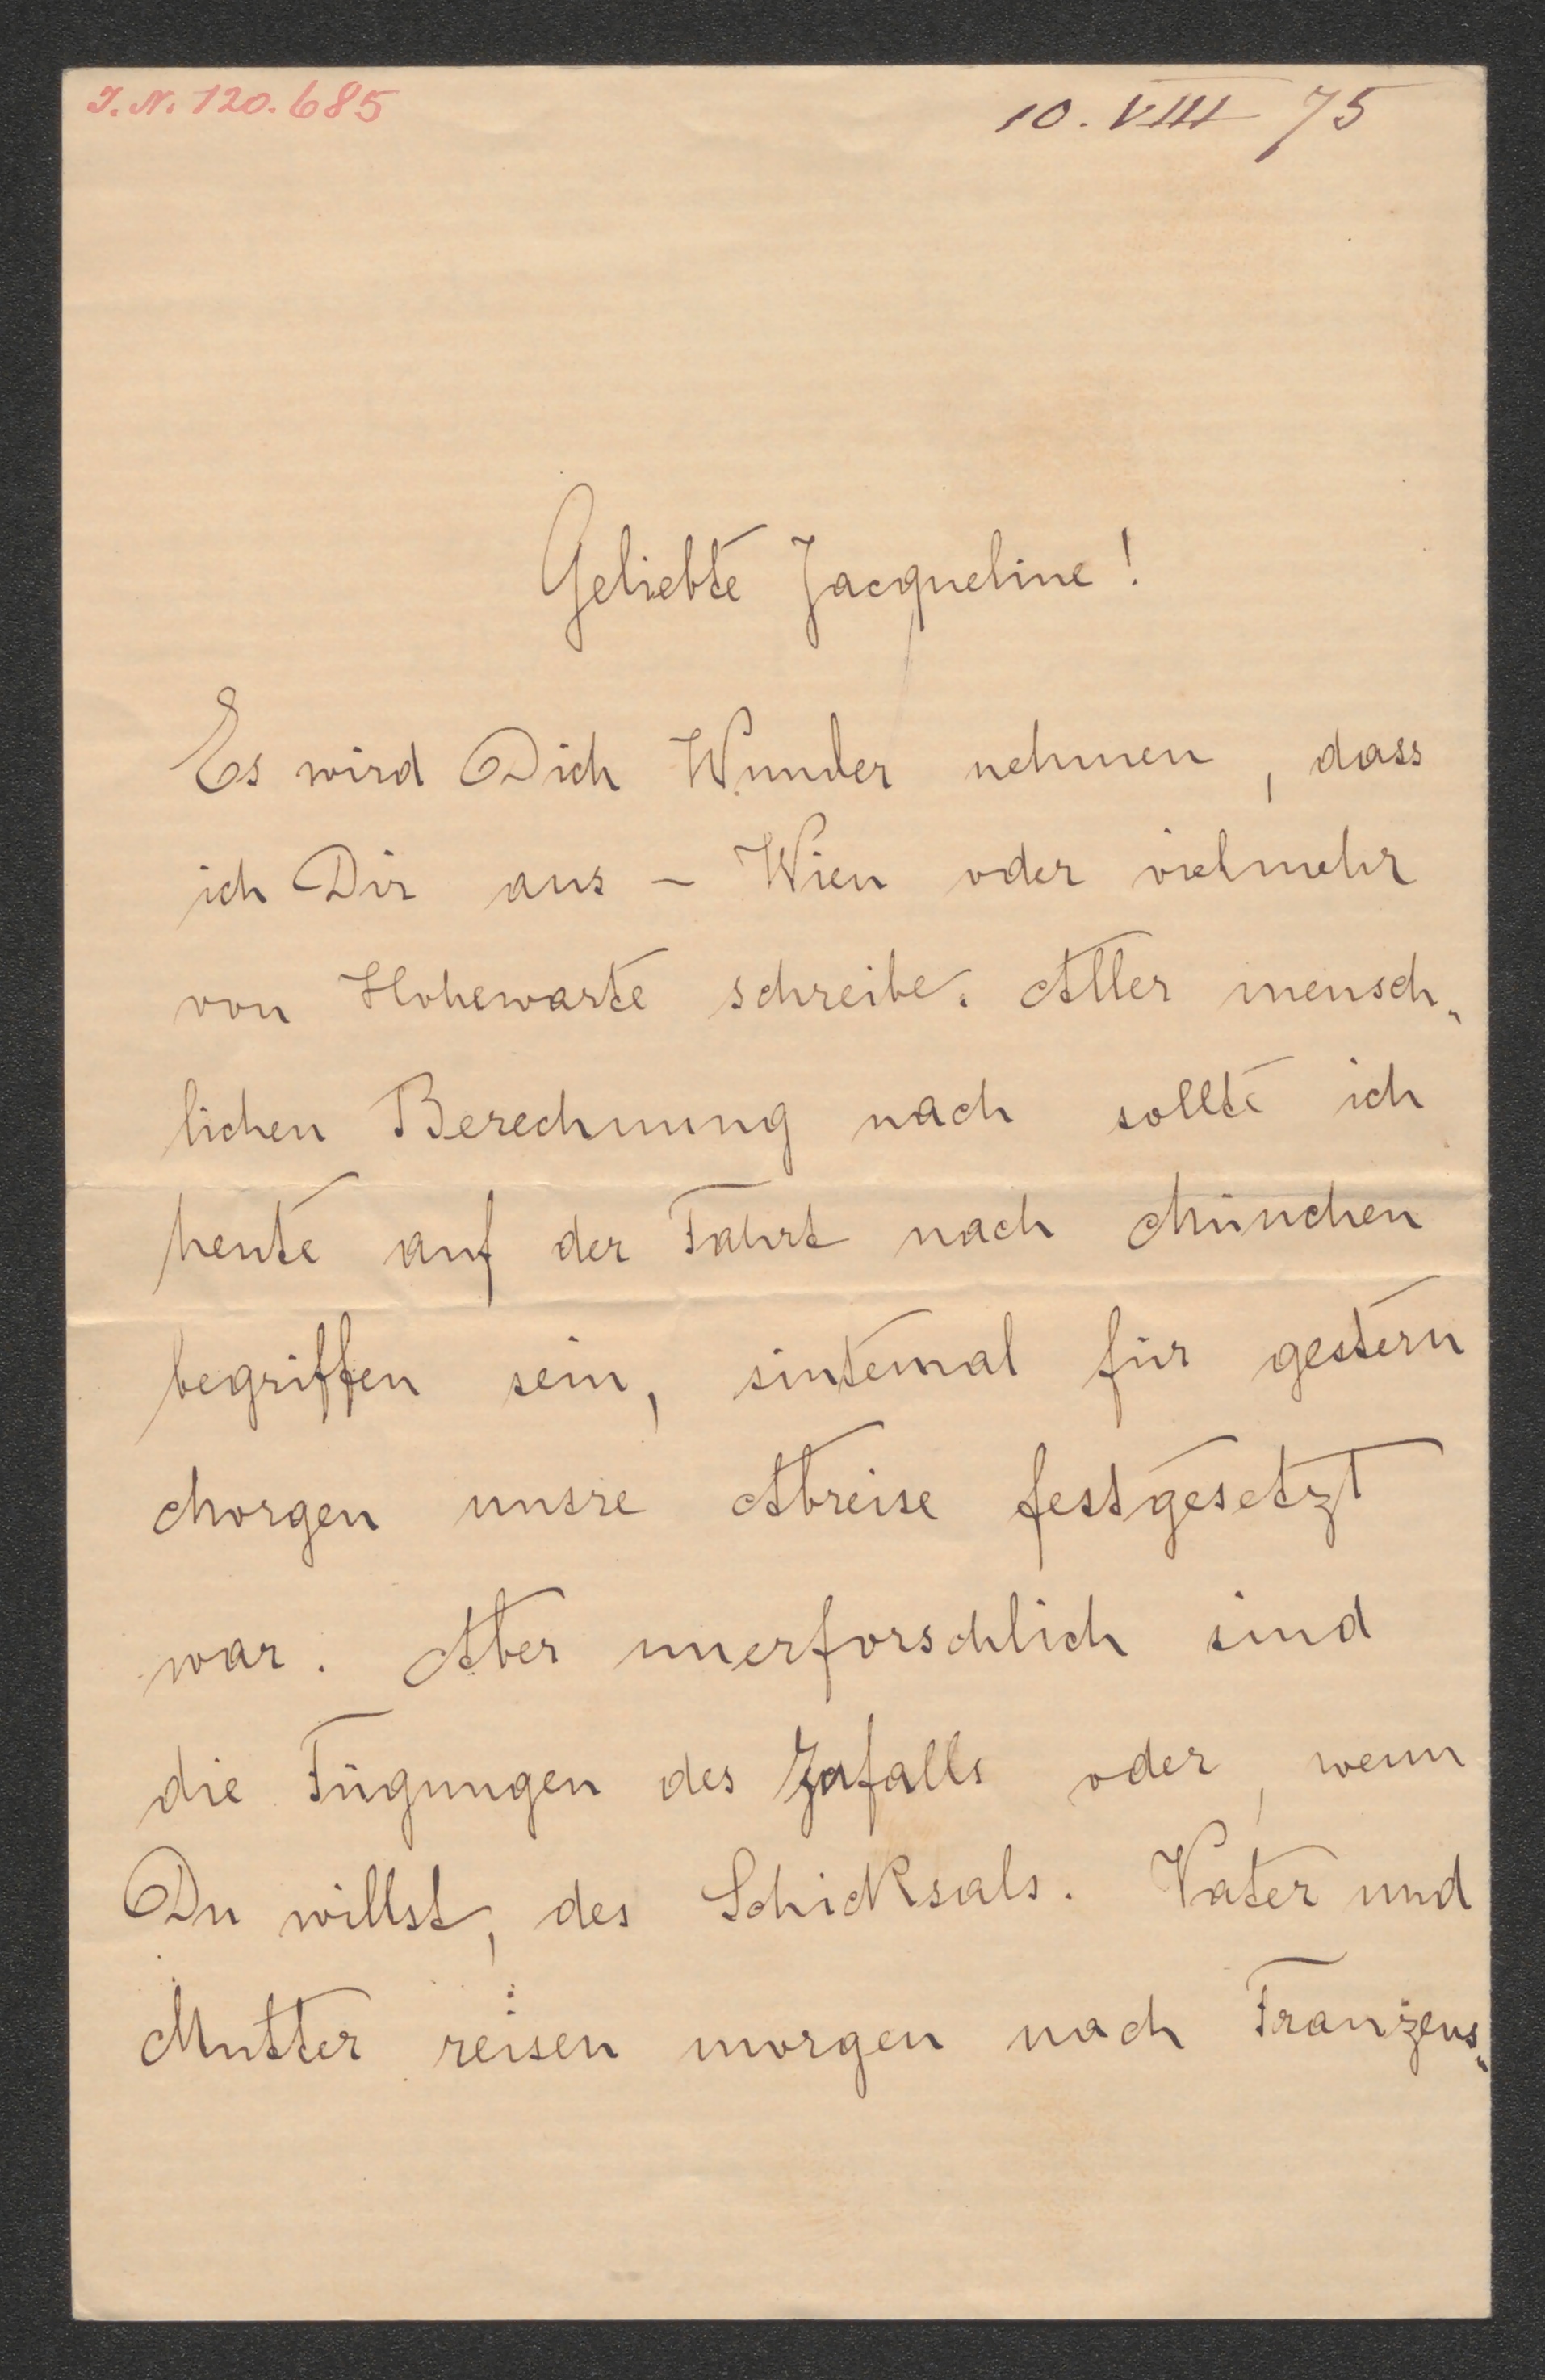 J. N. 120.685
10. VIII 75
Geliebte Jacqueline!
Es wird Dich Wunder nehmen, dass
ich Dir aus – Wien oder vielmehr
von Hohewarte schreibe. Aller mensch„
lichen Berechnung nach sollte ich
heute auf der Fahrt nach München
begriffen sein, sintemal für gestern
Morgen unsre Abreise festgesetzt
war. Aber unerforschlich sind
die Fügungen des Zufalls oder, wenn
Du willst, des Schicksals. Vater und
Mutter reisen morgen nach Franzens„